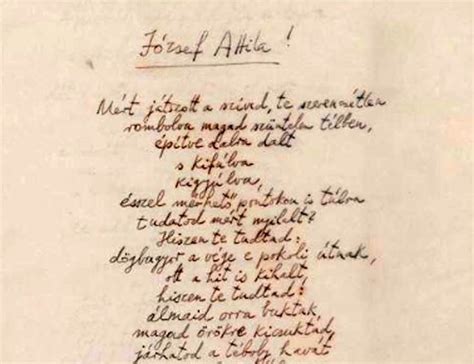 József Attila!
Mért játszott a szíved, te szerencsétlen
rombolva magad szüntelen télben,
építve dalra dalt
s kifúlva
kigyúlva,
ésszel mérhető pontokon is túlra
tudatod mért nyilalt?
Hiszen te tudtad:
dögbugyor a vége e pokoli útnak,
ott a hit is kihalt,
hiszen te tudtad:
álmaid orra buktak,
magad örökre kicsuktad,
járhatod a téboly havát